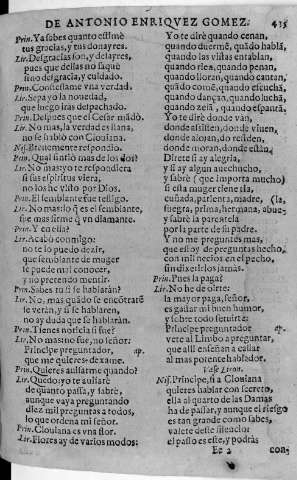 DE ANTONIO ENRIQVEZ GOMEZ. 435
Prin. Ya sabes quanto estimè
tus gracias, y tus donayres.
Lir. Desgracias son, y delayres,
pues que dellas no saquè
sino desgracia, y cuidado.
Prin. Confiessame vna verdad.
Lir. Sepa yo la nouedad,
que luego iràs despachado.
Prin. Despues que el Cesar mãdò.
Lir. No mas, la verdad es llana,
no se hablò con Clouiana.
Nis. Breuemente respondio.
Prin. Qual sintiò mas de los dos?
Lir. No mas, yo te respondiera
si sus espiritus viera,
no los he visto por Dios.
Prin. El semblante fue testigo.
Lir. No mas: lo q̃ es el semblante,
fue mas firme q̃ vn diamante.
Prin. Y en ella?
Lir. Acabò conmigo:
no te lo puedo dezir,
que semblante de muger
se puede mal conocer,
y no pretendo mentir.
Prin. Sabes tu si se hablaràn?
Lir. No, mas quando se encontrarẽ
se veràn, y si se hallaren,
no ay duda que se hablaràn.
Prin. Tienes noticia si fue?
Lir. No mas: no fue, no señor:
Principe preguntador, ap.
que me quieres? dexame.
Prin. Quieres auisarme quando?
Lir. Quedo: yo te auisarè
de quanto passa, y sabrè,
aunque vaya preguntando
diez mil preguntas a todos,
lo que ordena mi señor.
Prin. Clouiana es vna flor.
Lir. Flores ay de varios modos:
Yo te dirè quando cenan,
quando duermẽ, quãdo hablã,
quando las visitas entablan,
quando rien, quando penan,
quando lloran, quando cantan,
quãdo comẽ, quando escuchã,
quando dançan, quando luchã,
quando zelã, quando espantã,
Yo te dirè donde van,
donde assisten, donde viuen,
donde aloxan, do residen,
donde moran, donde estàn.
Direte si ay alegria,
y si ay algun auechucho,
y sabrè (que importa mucho)
si essa muger tiene tia,
cuñada, parienta, madre,
suegra, prima, hermana, abuela,
y sabrè la parentela
por la parte de su padre.
Y no me preguntes mas,
que estoy de preguntas hecho,
con mil necios en el pecho,
sin dezirselo jamàs.
Prin. Pues la paga?
Lir. No he de oirte:
la mayor paga, señor,
es gastar mi buen humor,
y sobre todo seruirte:
Principe preguntador ap.
vete al Limbo a preguntar,
que alli enseñan a callar
al mas potente hablador.
Vase Liron.
Nis. Principe, si a Clouiana
quieres hablar con secreto,
ella al quarto de las Damas
ha de passar, y aunque el riesgo
es tan grande como sabes,
valete desse silencio:
el passo es este, y podràs
Ee 2 con-